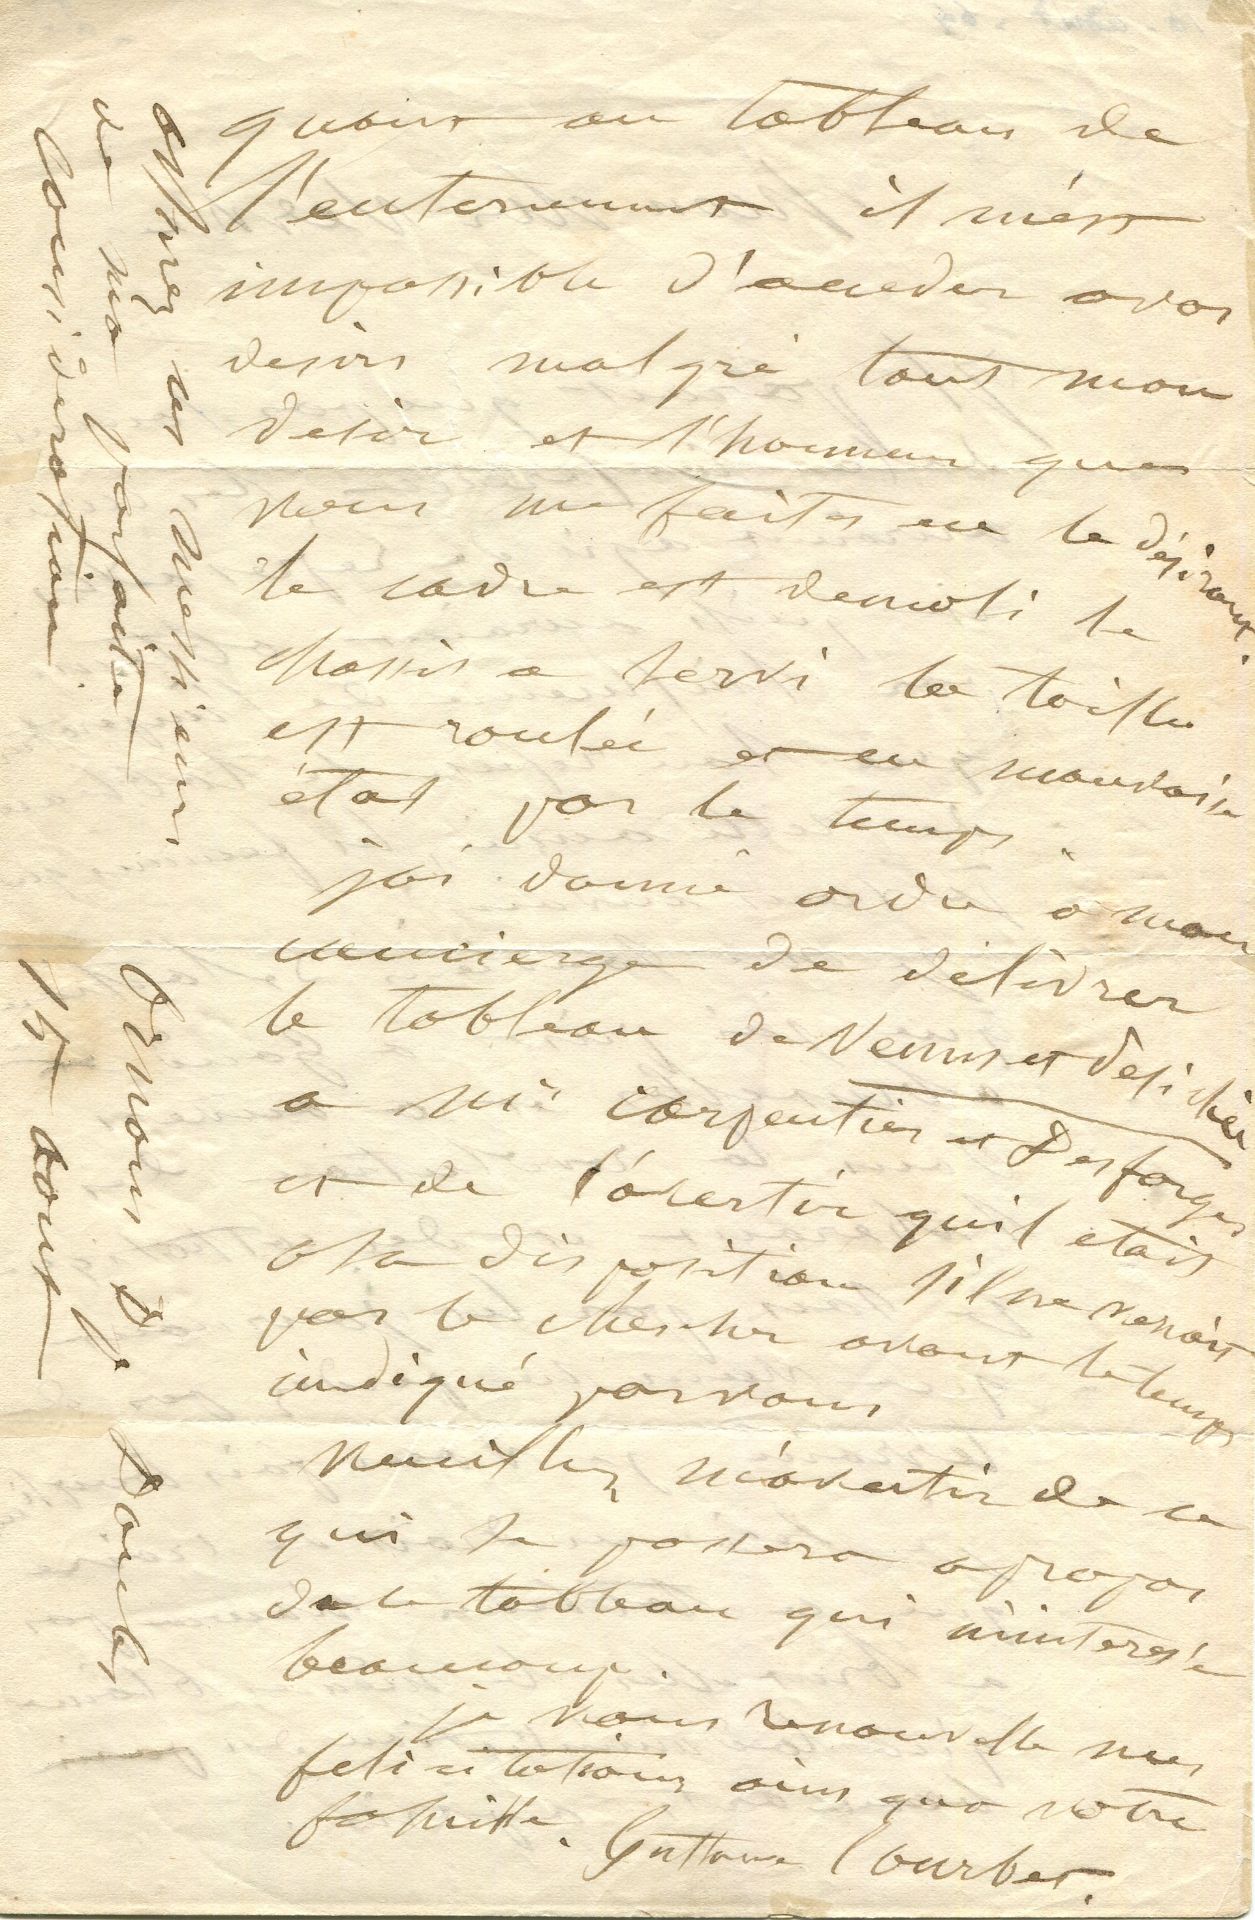 quant au tableau de
l'enterrement il m'est
impossible d'acceder avos
desirs malgré tout mon
desir et l'honneur que
vous me faites en le désirant.
le cadre est demoli le
chassis a servi la toille
est roulée et en mauvaise
état par le temps.
jai donné ordre a mon
concierge de délivrer
le tableau de Venus et Psichée
a Mr carpentier et Desforges
et de l'avertir quil etait
asa disposition sil ne venait
pas le chercher avant le temps
indiqué parvous
veuillez m'avertir de ce
qui se passera apropos
de ce tableau qui m'interesse
beaucoup.
je vous renouvelle mes
felicitations ains qua votre
famille. Gustave Courbet.
offrez ces messieurs
de ma parfaite
consideration
Ornans D. Doubs
15 aout